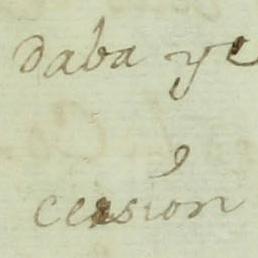 daba ye
cession